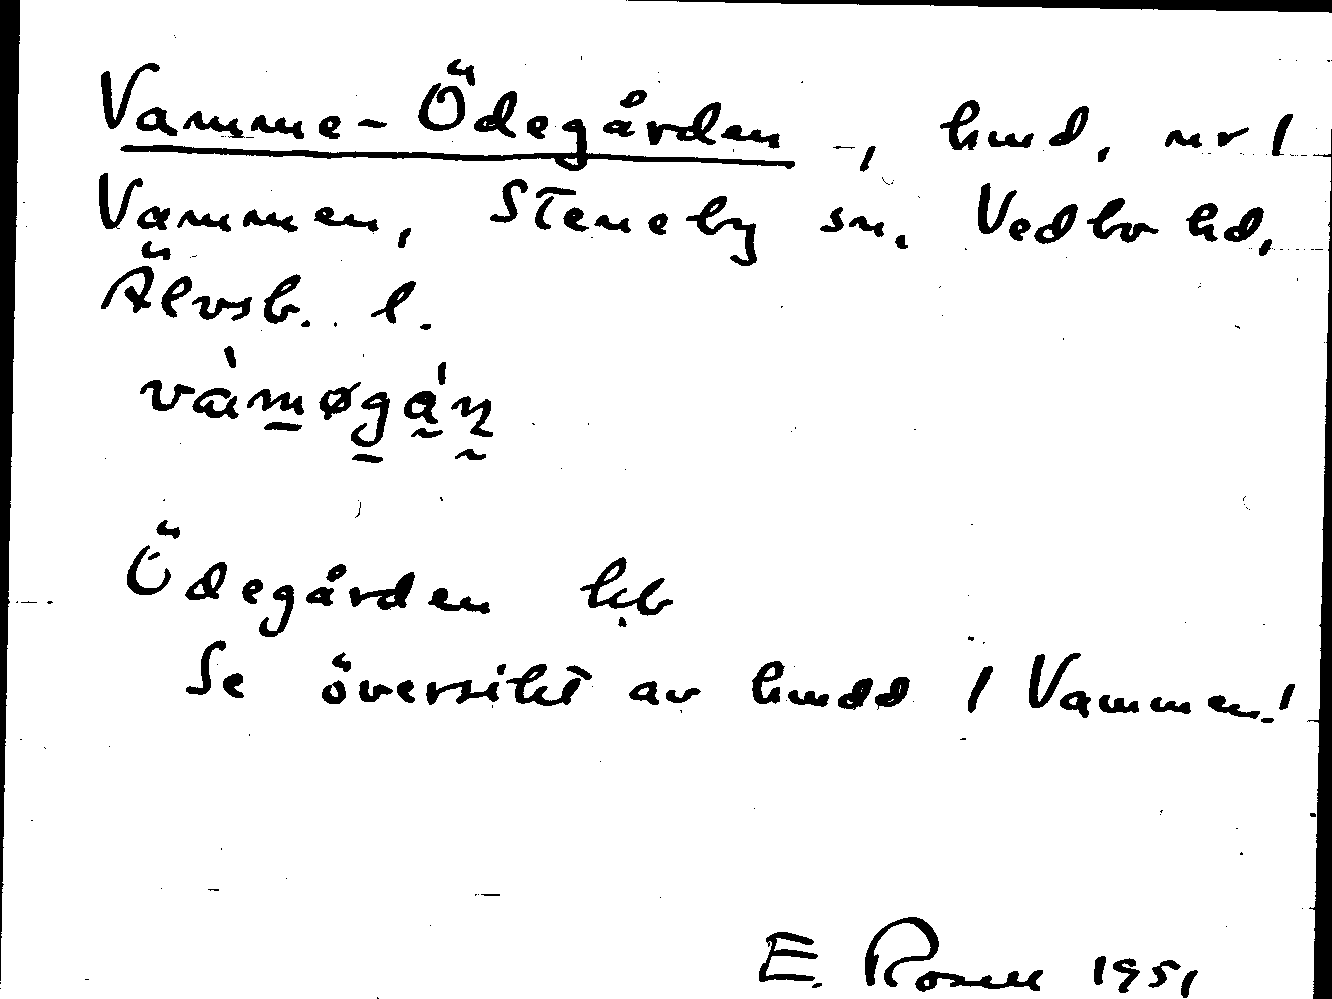 Vamme-Ödegården -, hmd, nr 1
Vammen, Steneby sn. Vedbo hd,
Älvsb. l.
vàm̲øg̲á̰ṉ
Ödegården kb
Se översikt av hmdd 1 Vammen!
E. Rosell 1951